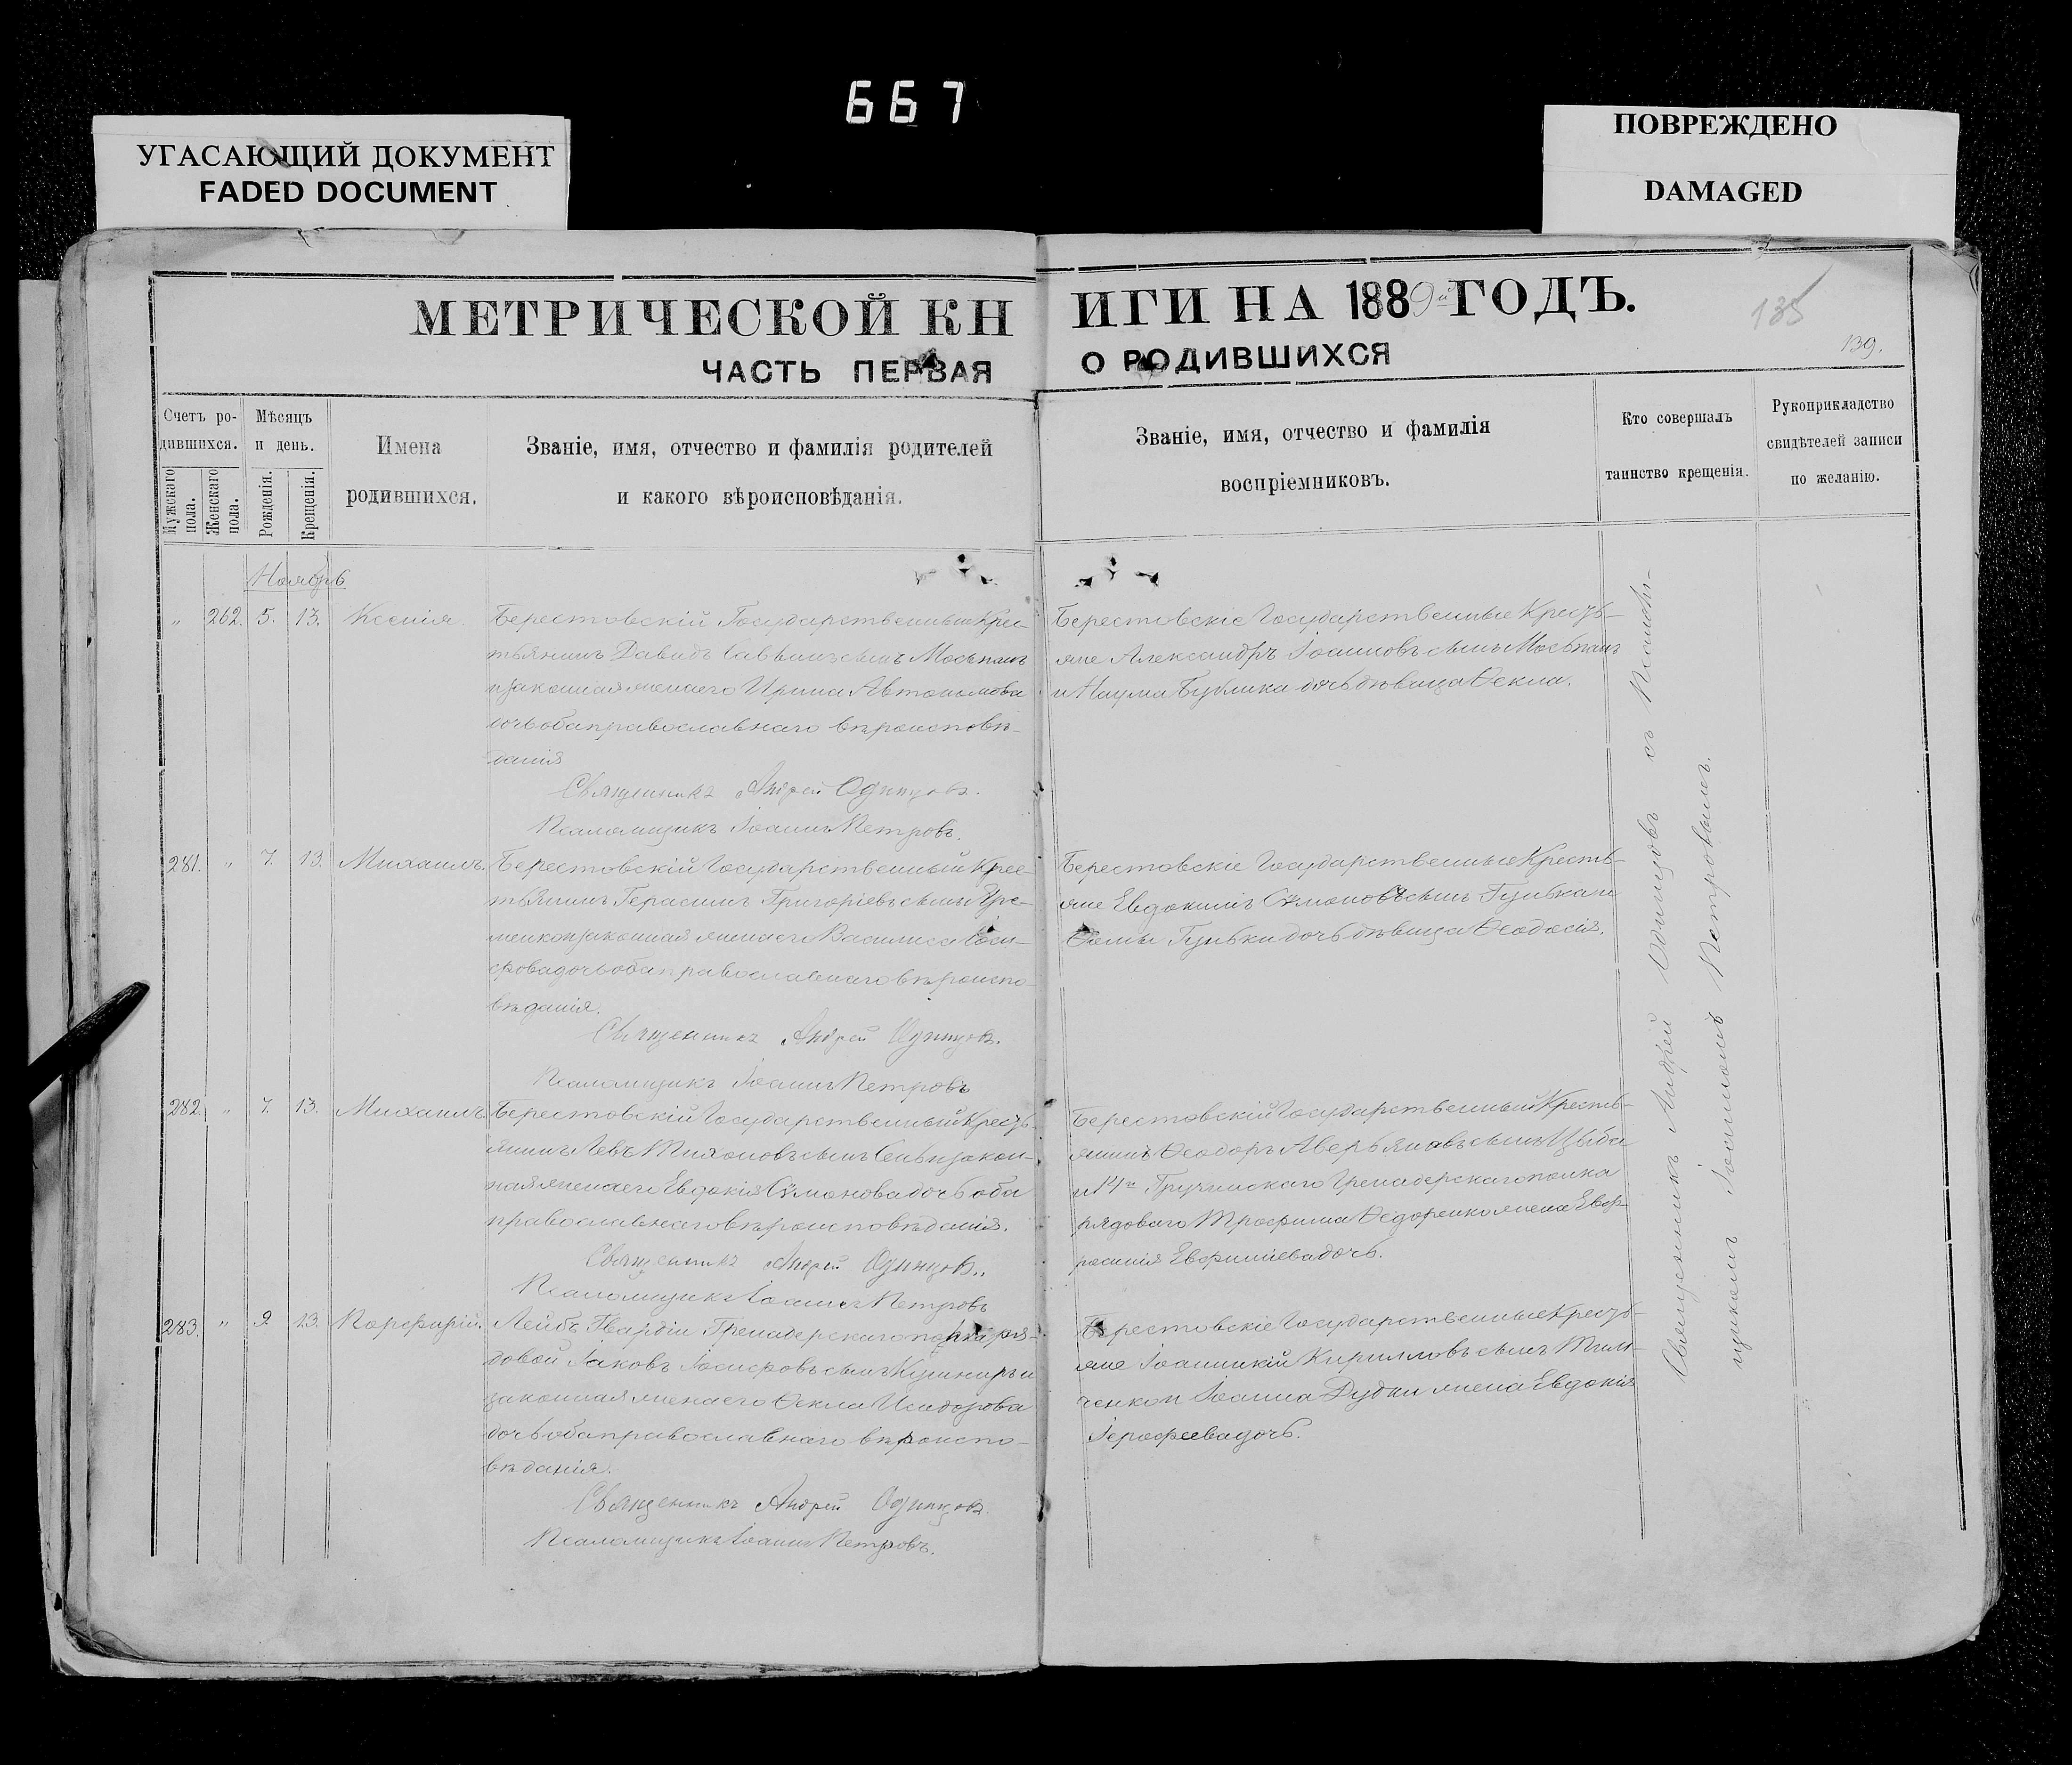 667
УГАСАЮЩИЙ ДОКУМЕНТ
FADED DOCUMENT
ПОВРЕЖДЕНО
DAMAGED
МЕТРИЧЕСКОЙ КНИГИ НА 1889й ГОДЪ.
135
139.
ЧАСТЬ ПЕРВАЯ О РОДИВШИХСЯ
Счетъ ро-
дившихся.
Мужскаго пола.
Женскаго пола.
Мѣсяцъ
и день.
Рожденія.
Крещенія.
Имена
родившихся.
Званіе, имя, отчество и фамилія родителей
и какого вѣроисповѣданія.
Званіе, имя, отчество и фамилія
воспріемниковъ.
Кто совершалъ
таинство крещенія.
Рукоприкладство
свидѣтелей записи
по желанію.
Ноябрь
" 262. 5. 13. Ксенія.
Берестовскій Государственный Крес-
тьянинъ Давидъ Саввинъ сынъ Мосьпанъ
и законная жена его Ирина Автономова
дочь оба православнаго вѣроисповѣ-
данія
Священникъ Андрей Одинцовъ.
Псаломщикъ Іоаннъ Петровъ.
Берестовскіе Государственные Кресть-
яне Александръ Іоанновъ сынъ Мосьпанъ
и Наума Бублика дочь дѣвица Ѳекла.
281. " 7. 13. Михаилъ.
Берестовскій Государственный Крес-
тьянинъ Герасимъ Григоріевъ сынъ Яре-
менко и законная жена его Василиса Іоси-
фова дочь оба православнаго вѣроиспо-
вѣданія.
Священникъ Андрей Одинцовъ.
Псаломщикъ Іоаннъ Петровъ
Берестовскіе Государственные Кресть-
яне Евдокимъ Сѵмоновъ сынъ Гунька и
Ѳомы Гуньки дочь дѣвица Ѳеодосія.
282. " 7. 13. Михаилъ.
Берестовскій Государственный Кресть-
янинъ Левъ Тихоновъ сынъ Сень и закон-
ная жена его Евдокія Сѵмонова дочь оба
православнаго вѣроисповѣданія.
Священникъ Андрей Одинцовъ.
Псаломщикъ Іоаннъ Петровъ
Берестовскій Государственный Кресть-
янинъ Ѳеодоръ Аверьяновъ сынъ Цыба
и 14го Грузинскаго Гренадерскаго полка
рядоваго Трофима Ѳедоренко жена Евф-
росинія Евфиміева дочь.
283. " 9. 13. Порфирій.
Лейбъ Гвардіи Гренадерскаго полка ря-
довой Іаковъ Іосифовъ сынъ Кушниръ и
законная жена его Ѳекла Исидорова
дочь оба православнаго вѣроиспо-
вѣданія.
Священникъ Андрей Одинцовъ.
Псаломщикъ Іоаннъ Петровъ.
Берестовскіе Государственные Кресть-
яне Іоанникій Кирилловъ сынъ Тим-
ченко и Іоанна Дудки жена Евдокія
Іерофеева дочь.
Священникъ Андрей Одинцовъ съ Псалом-
щикомъ Іоанномъ Петровымъ.